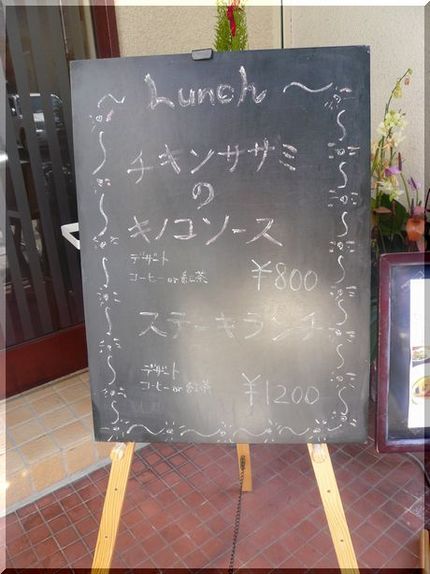 Lunch
チキンササミ
の
キノコソース
デザート
コーヒー or 紅茶
¥800
ステーキランチ
デザート
コーヒー or 紅茶
¥1200